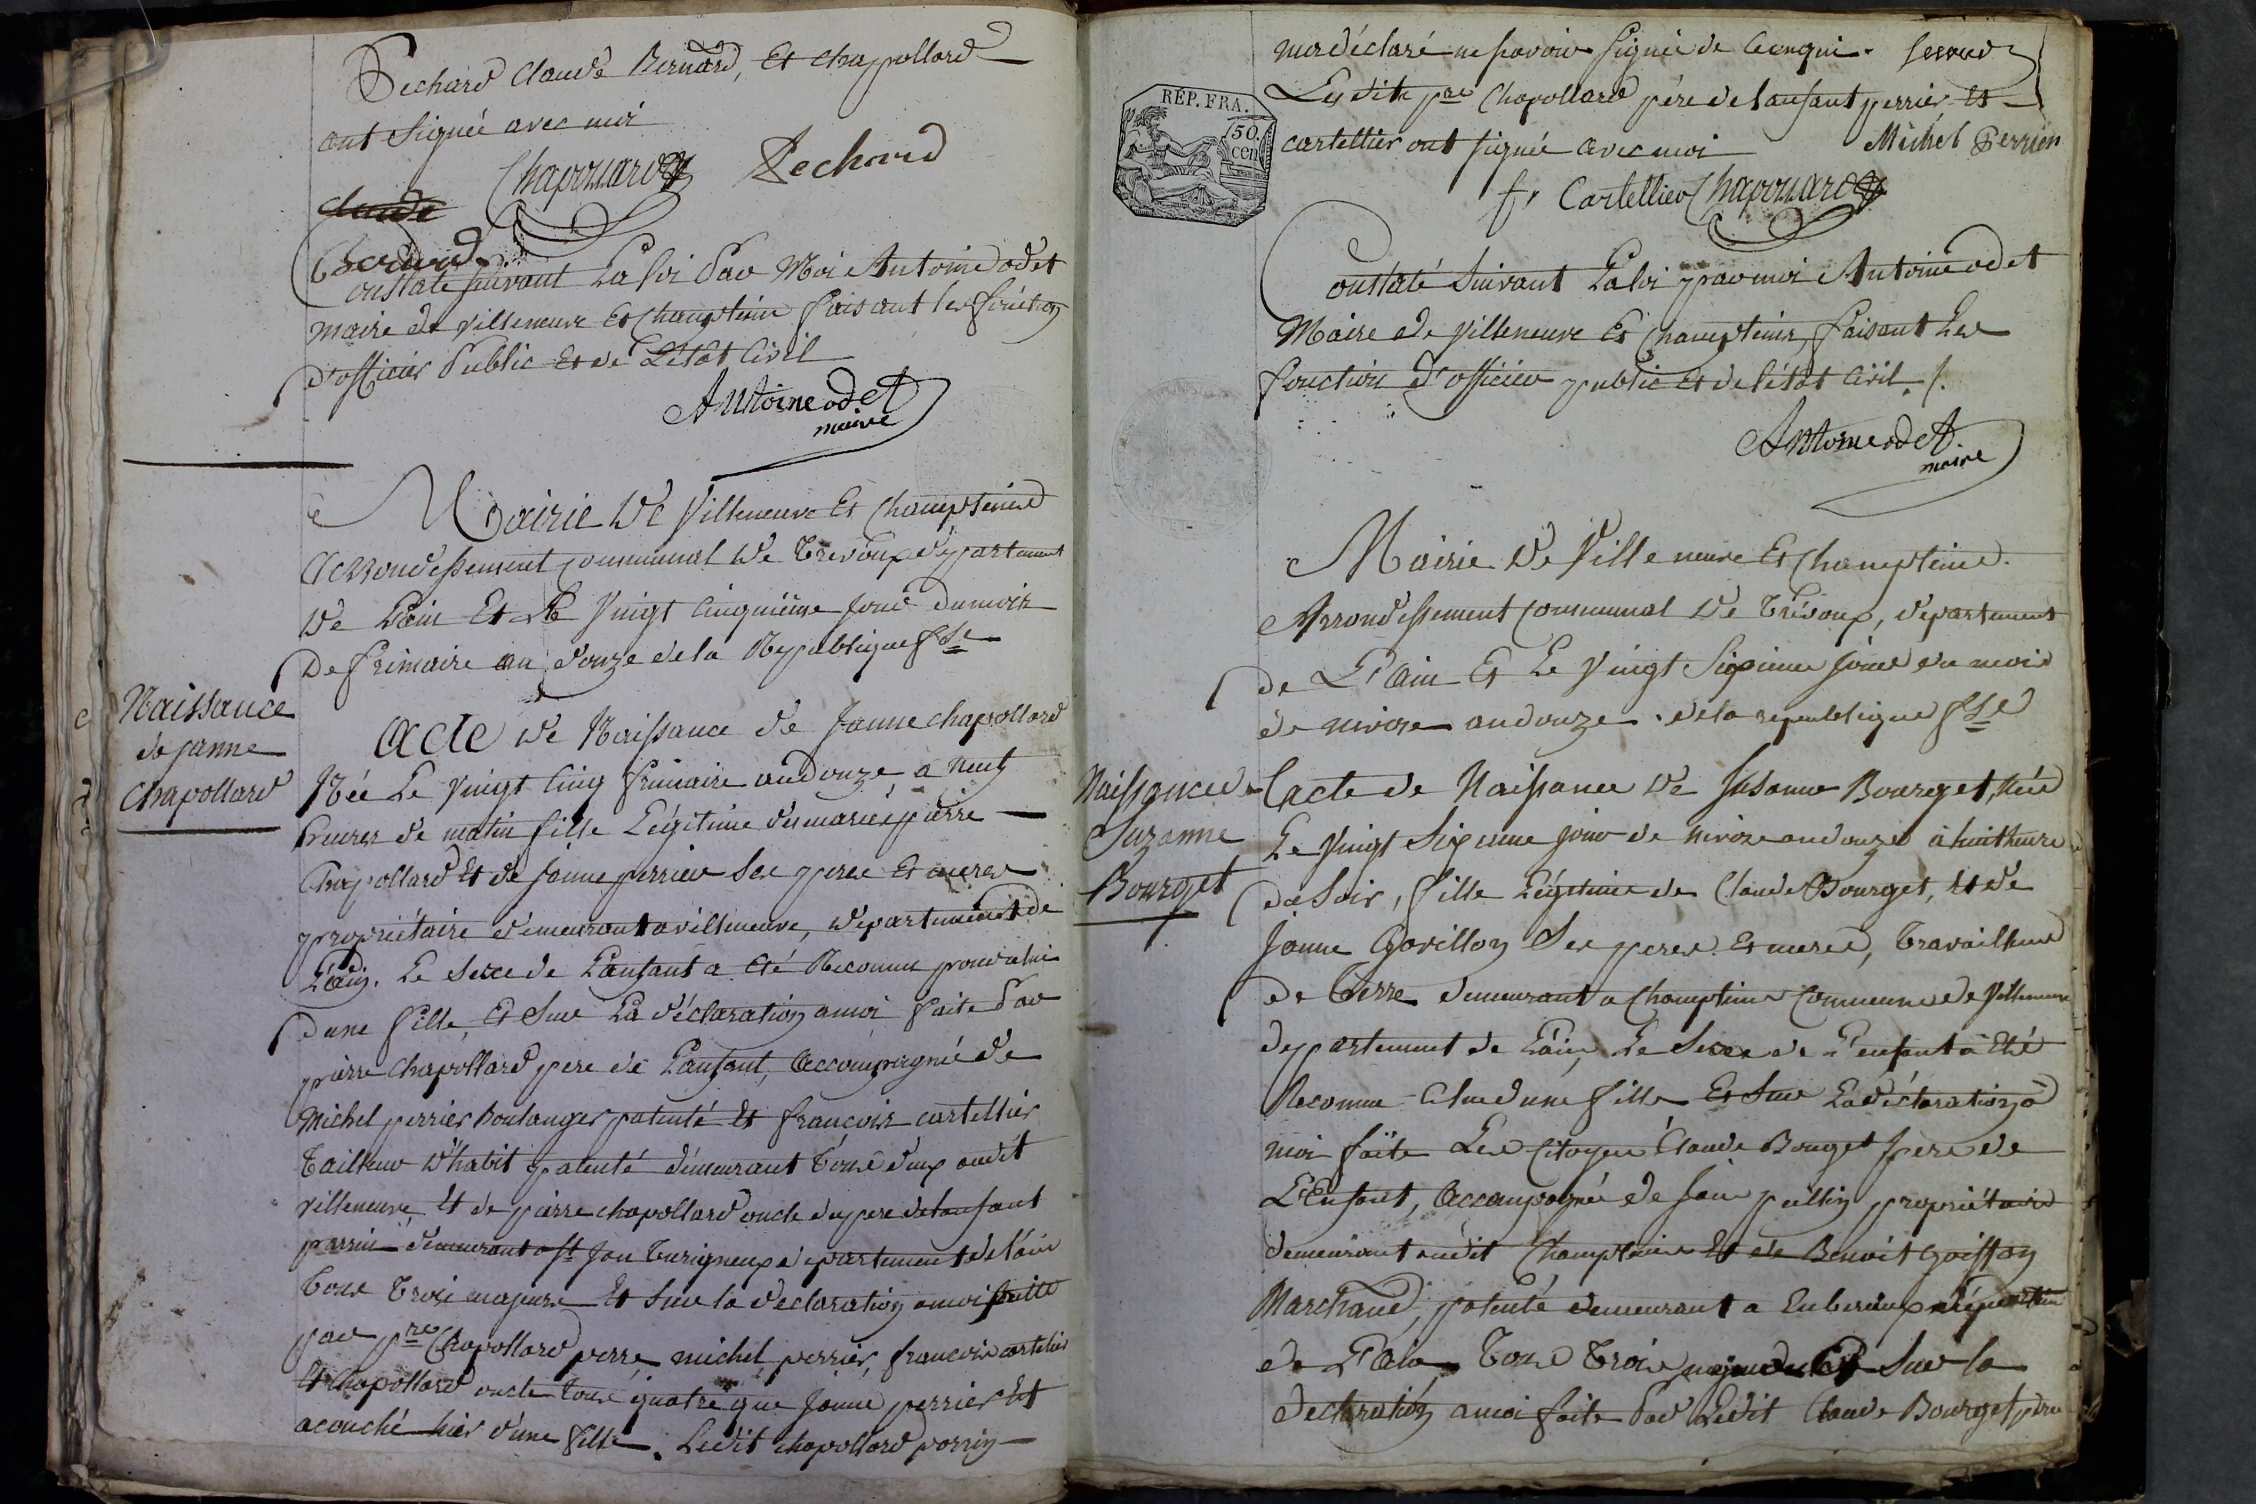 Pechard Claude Bernard, Et Chapollard
ont Signée avec moi
Chapouard Pechard
Claude
Bernard
Constaté suivant La loi Par Moi Antoine odet
maire de villeneuve Et Champteins faisant les fonction
d'officier Public Et de L'état Civil
Antoine odet
maire
Mairie de Villeneuve Et Champteins
Arrondissement communal de Trevoux département
de L'ain Et Le Vingt Cinquième jour du mois
de frimaire an douze de la République fse
Naissance
de janne
Chapollard
Acte de Naissance de Janne chapollard
Née Le Vingt Cinq frimaire an douze a neuf
heures de matin fille Légitime des mariés pierre
Chapollard Et de Janne perrier Ses peres Et meres
propriétaire demeurant a villeneuve, département de
L'ain. Le Sexe de L'anfant a été Reconnu pour celui
d'une fille, Et Sur La déclaration a moi faite Par
pierre Chapollard pere de L'anfant, accompagné de
Michel perrier Boulanger patenté Et francois cartellier
Tailleur d'habit patenté demeurant Tous deux audit
villeneuve Et de pierre chapollard oncle du pere de lanfant
parrin demeurant a st Jan Turigneux département de l'ain
Tous Trois majeurs Et Sur la déclaration a moi faitte
par pre Chapollard perre, michel perrier, francois cartelier
Et chapollard oncle tous quatre que Janne perrier Est
acouché hier d'une fille. Ledit chapollard parrin
ma déclaré ne savoir signée de Cenqui.
Lesdits pre Chapollard père de lanfant perrier Et
cartellier ont signée avec moi
Michel Perrier
REP. FRA.
50.
cen
fr Cartellier Chapouard
Constaté Suivant La loi par moi Antoine odet
Maire de Villeneuve Et Champteins, faisant Les
fonction d'officier public Et de l'état Civil ./.
Antoine odet
maire
Mairie de Villeneuve Et Champteins.
Arrondissement communal de Trévoux, département
de L'ain Et Le Vingt Sixieme jour du mois
de nivose an douze de la republique fse
Naissance
Suzanne
Bourget
L'acte de Naissance de Susanne Bourget, Née
Le Vingt Sixieme jour de nivose an douze à huit heure
de Soir, fille Légitime de Claude Bourget, Et de
Janne Gorillon Ses peres Et meres, Travailleurs
de Terre demeurant a Champteins Commune de Villeneuve
département de L'ain, Le Sexe de L'enfant a Eté
Reconnu Celui d'une fille Et Sur La déclaration à
moi faite Les Citoyens Claude Bouget pere de
L'Enfant, accompagné de Jain propriétaire
demeurant audit Champteins Et de Benoit Goiffon
Marchand, patenté demeurant a département
de L'ain Tous Trois majeurs Et Sur la
déclaration a moi faite Par Ledit Claude Bourget pere